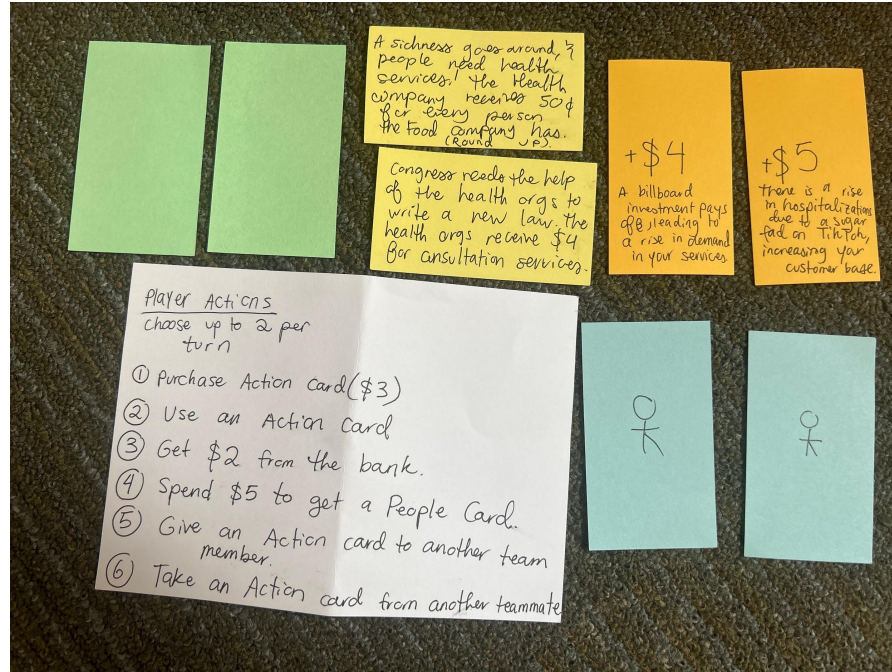 A sickness goes around, &
people need health
services! The Health
company receives 50¢
for every person
the Food company has.
(ROUND UP).
Congress needs the help
of the health orgs to
write a new law. The
health orgs receive $4
for consultation services.
+$4
A billboard
investment pays
off, leading to
a rise in demand
in your services
+$5
There is a rise
in hospitalizations
due to a sugar
fad on TikTok,
increasing your
customer base.
Player Actions
choose up to 2 per
turn
① Purchase Action Card ($3)
② Use an Action Card
③ Get $2 from the bank.
④ Spend $5 to get a People Card.
⑤ Give an Action card to another team
member.
⑥ Take an Action card from another teammate